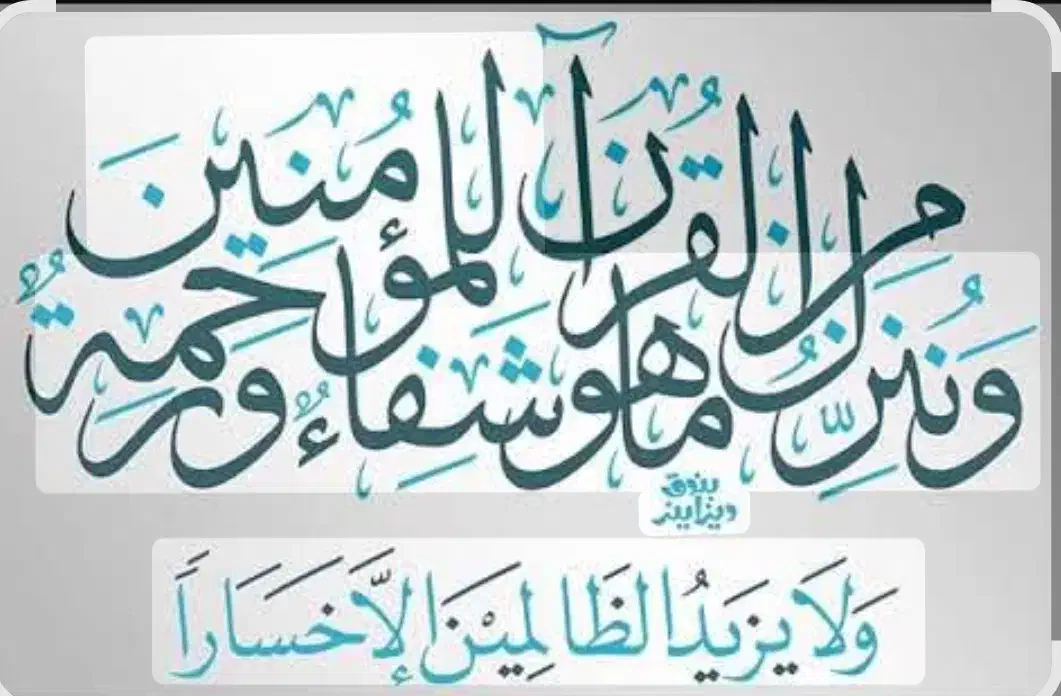 وَنُنَزِّلُ مِنَ الْقُرْآنِ مَا هُوَ شِفَاءٌ وَرَحْمَةٌ لِلْمُؤْمِنِينَ
ديزاينر
وَلَا يَزِيدُ الظَّالِمِيْنَ إِلَّا خَسَاراً